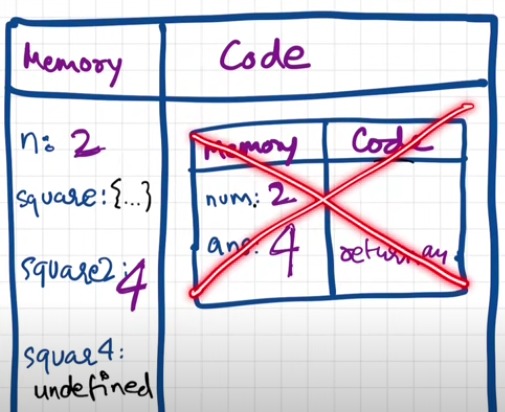 Memory
Code
n: 2
square: {...}
square2: 4
squar4:
undefined
Memory
Code
num: 2
ans: 4
return